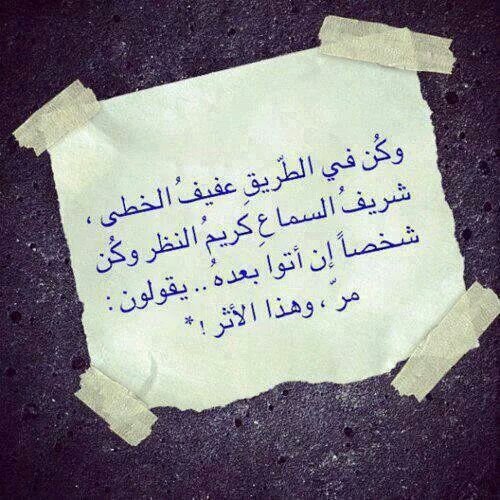 وكُن في الطّريقِ عفيفُ الخطى ،
شريفُ السماعِ كريمُ النظر وكُن
شخصاً إن أتوا بعدهُ .. يقولون :
مرّ ، وهذا الأثر ! *